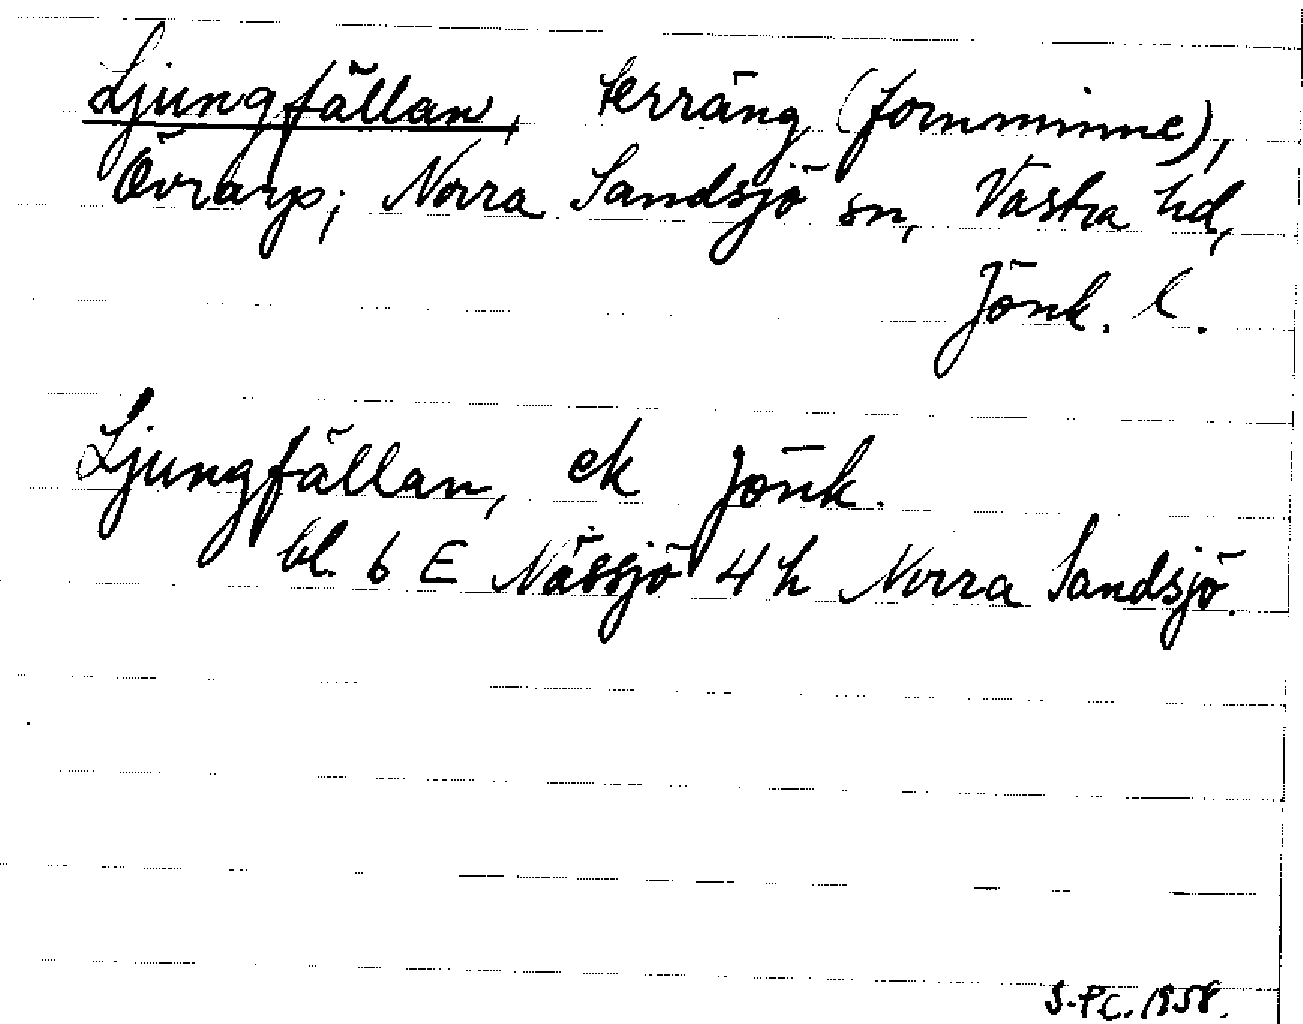 Ljungfällan, terräng (fornminne),
Övrarp; Norra Sandsjö sn, Västra hd,
Jönk. l.
Ljungfällan, ek Jönk.
bl. 6 E Nässjö 4 h Norra Sandsjö.
S.-P.C. 1958.